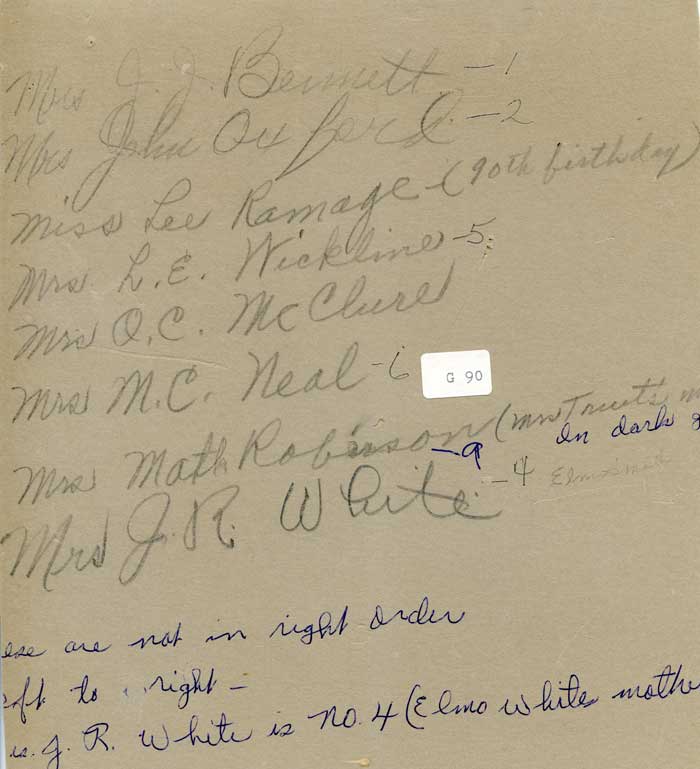 Mrs J. J. Bennett -1
Mrs John Oxford. -2
Miss Lee Ramage - (90th birthday)
Mrs L. E. Wickline -5
Mrs O. C. McClure
Mrs M. C. Neal -6
G 90
Mrs Math Robinson (Mrs Truett's m
-9 In dark g
Mrs J. R. White. -4 Elmo's mot
ese are not in right order
eft to right -
s. J. R. White is no. 4 (Elmo White mothe